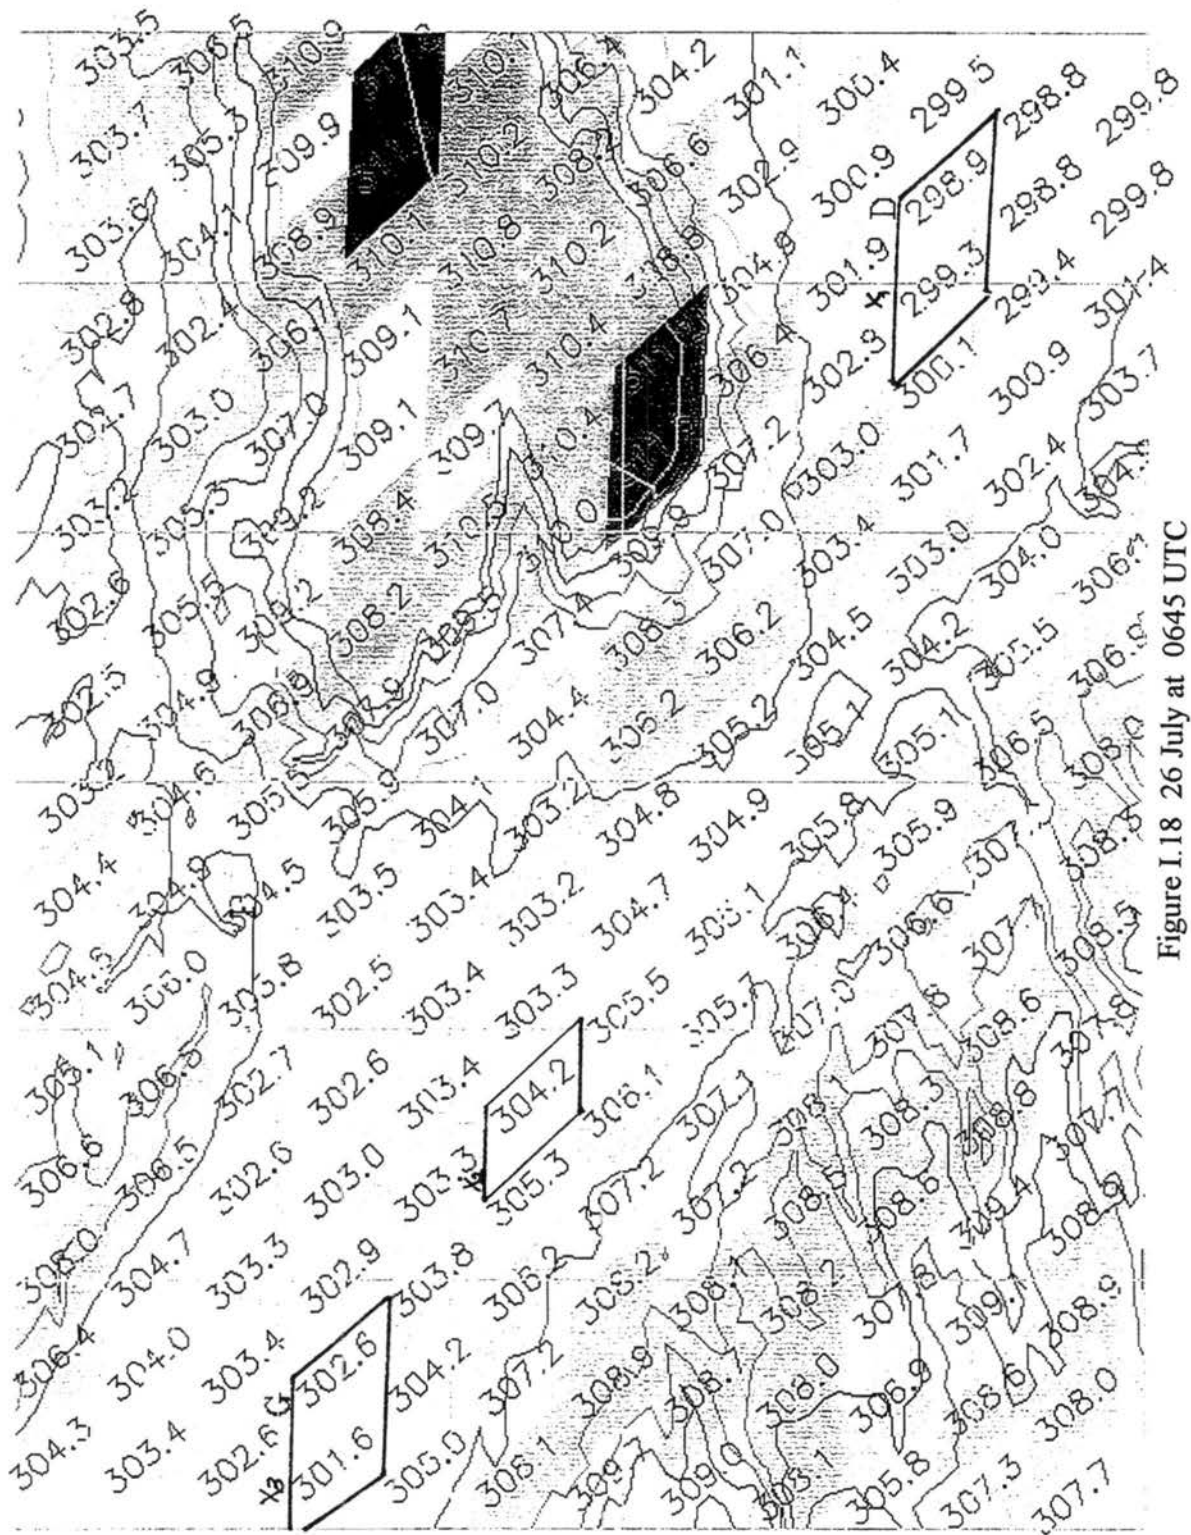 303.5 306.5 310.9 306.4 304.2 301.1 300.4 299.5 298.8 299.8
303.7 305.3 309.9 310.2 308.2 306.6 302.9 300.9 D 298.9 298.8 299.8
303.6 304.1 308.9 310.1 310.8 310.2 308.8 304.9 301.9 X 299.3 299.4 301.4
302.8 302.4 306.7 309.1 310.7 310.4 306.4 302.9 300.1 300.9 303.7
302.7 303.0 307.0 309.1 309.7 310.4 307.2 303.0 301.7 302.4
303.2 305.3 309.2 308.4 310.5 310.0 307.0 303.4 303.0 304.0
302.6 305.5 308.2 307.4 306.3 306.2 304.5 304.2 305.5 306.9
302.5 304.9 306.9 307.9 307.0 304.4 306.2 305.2 305.1 305.1 306.5 308.0
304.6 305.5 305.9 304.1 303.2 304.8 304.9 305.8 305.9 308.3
304.4 304.9 304.5 303.5 303.4 303.2 304.7 306.4 306.6 308.5
304.5 306.0 303.8 302.5 303.4 303.3 305.5 305.7 307.0 307.6 308.6 307.8
305.1 306.5 302.7 302.6 303.4 304.2 306.1 307.1 308.1 308.3 308.8 307.7
306.6 306.5 302.6 303.0 303.3 305.3 307.2 307.2 308.5 308.6 309.4 308.6
308.0 304.7 303.3 302.9 303.8 306.2 308.2 308.1 308.2 307.8 309.1 308.9
306.4 304.0 303.4 G 302.6 304.2 307.2 308.9 308.0 306.9 308.6 308.0
304.3 303.4 302.6 X3 301.6 305.0 308.1 309.2 309.0 308.1 305.8 307.3 307.7
Figure I.18 26 July at 0645 UTC